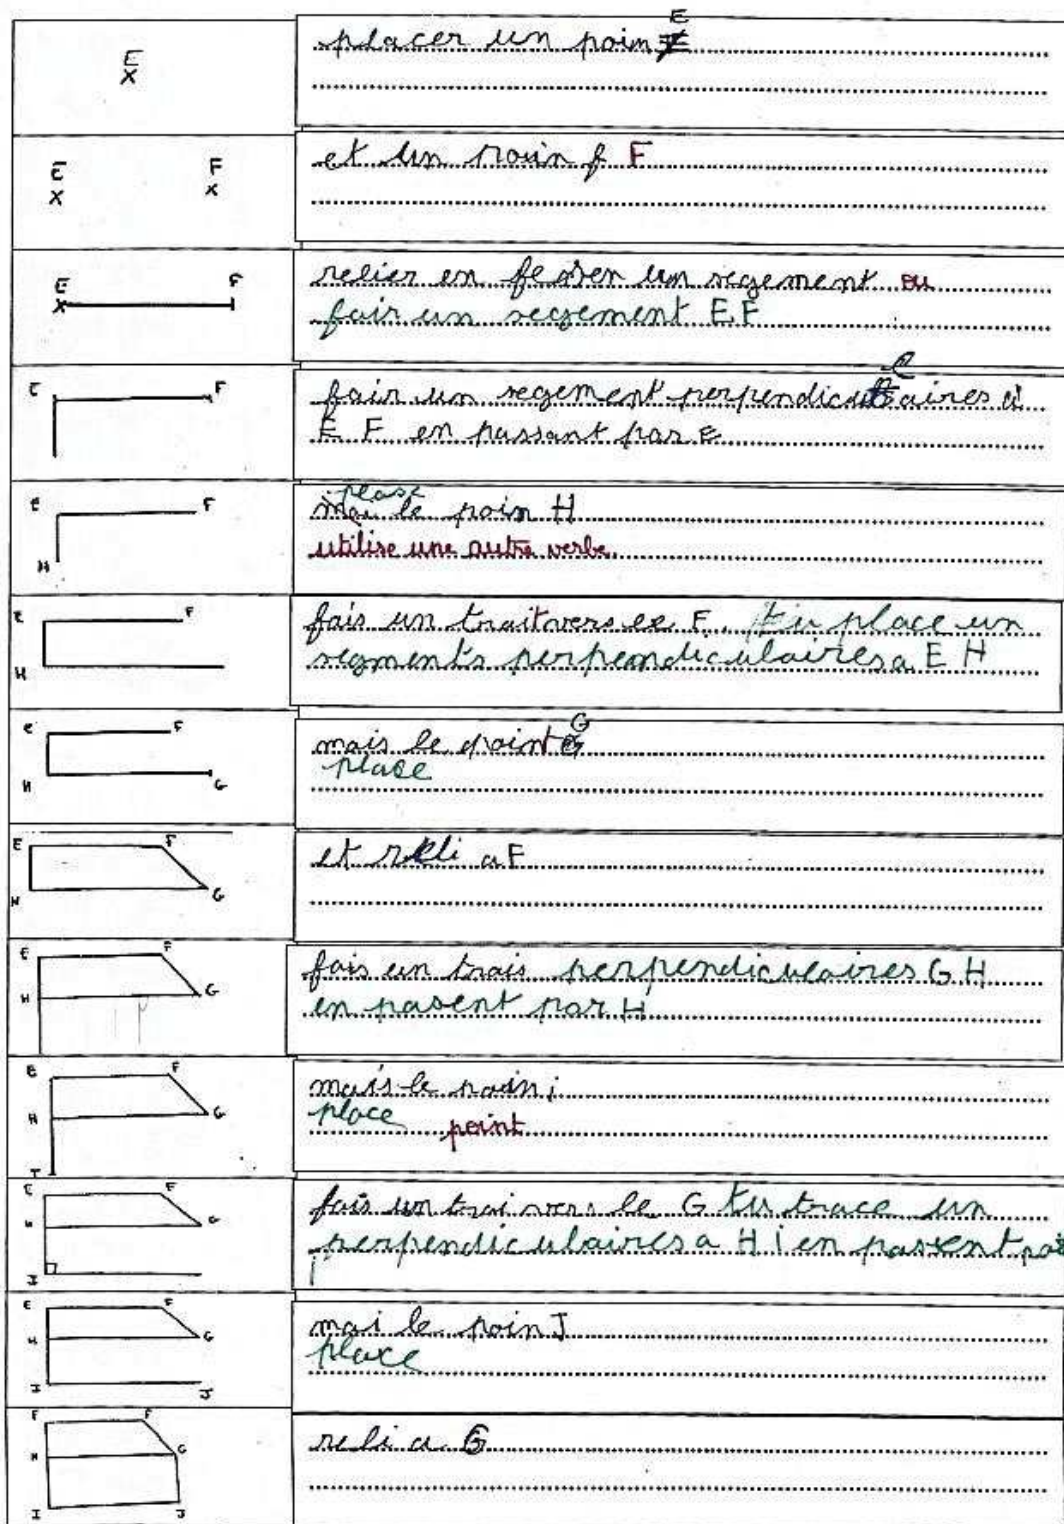 E
placer un poin E
E
X
E F
X X
et un poin f F
E F
X
relier en fesen un segement ou
fair un segement E F
E F
fair un segement perpendiculaires à
E F en passant par E
E F
H
plase
mai le poin H
utilise une autre verbe.
E F
H
fais un trait vers le F. tu place un
segments perpendiculaires a E H
E F
H G
mais le point G
place
E F
H G
et reli a F
E F
H G
fais un trais perpendiculaires G H
en pasent par H
E F
H G
I
mais le poin i
place point
E F
H G
I
fais un trai vers le G tu trace un
perpendiculaires a H i en passent par
i
E F
H G
I J
mai le poin J
place
E F
H G
I J
reli a G